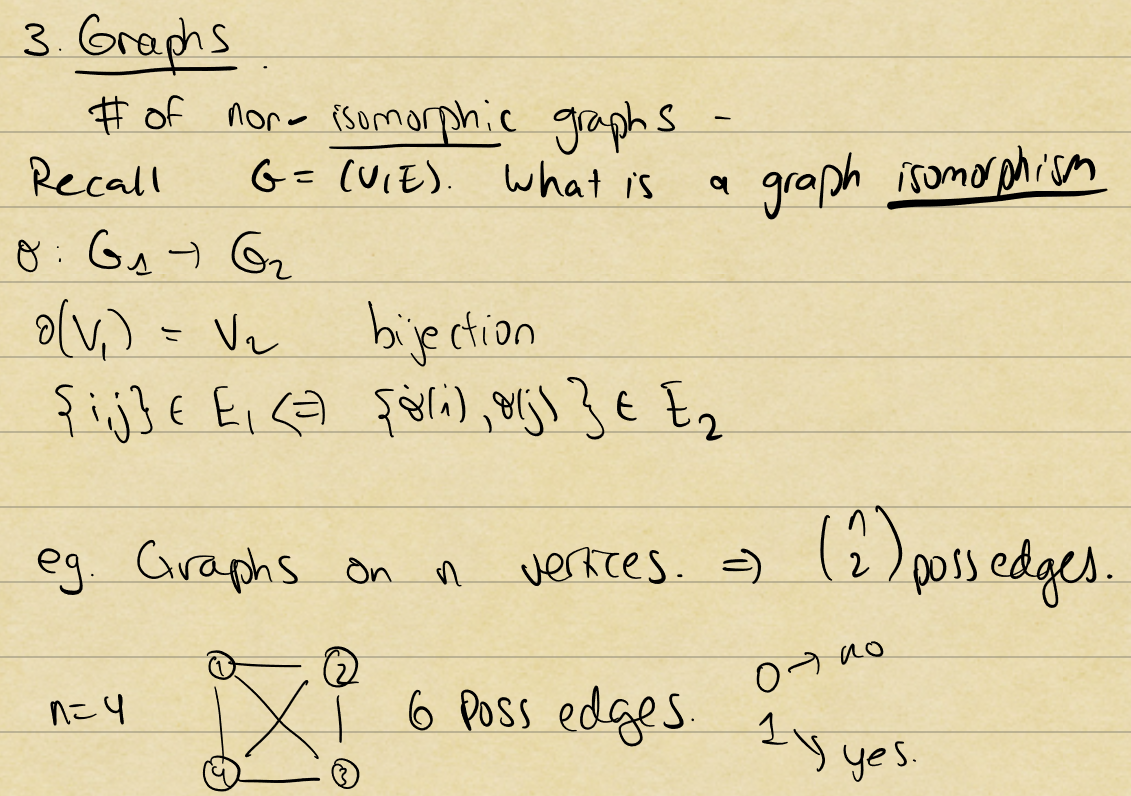 3. Graphs.
# of non-isomorphic graphs -
Recall G = (V,E). What is a graph isomorphism
σ : G1 → G2
σ(V1) = V2 bijection
{i,j} ∈ E1 <=> {σ(i), σ(j)} ∈ E2
eg. Graphs on n vertices. => (n 2) poss edges.
n=4 1 2 3 4 6 poss edges. 0 → no
1 → yes.